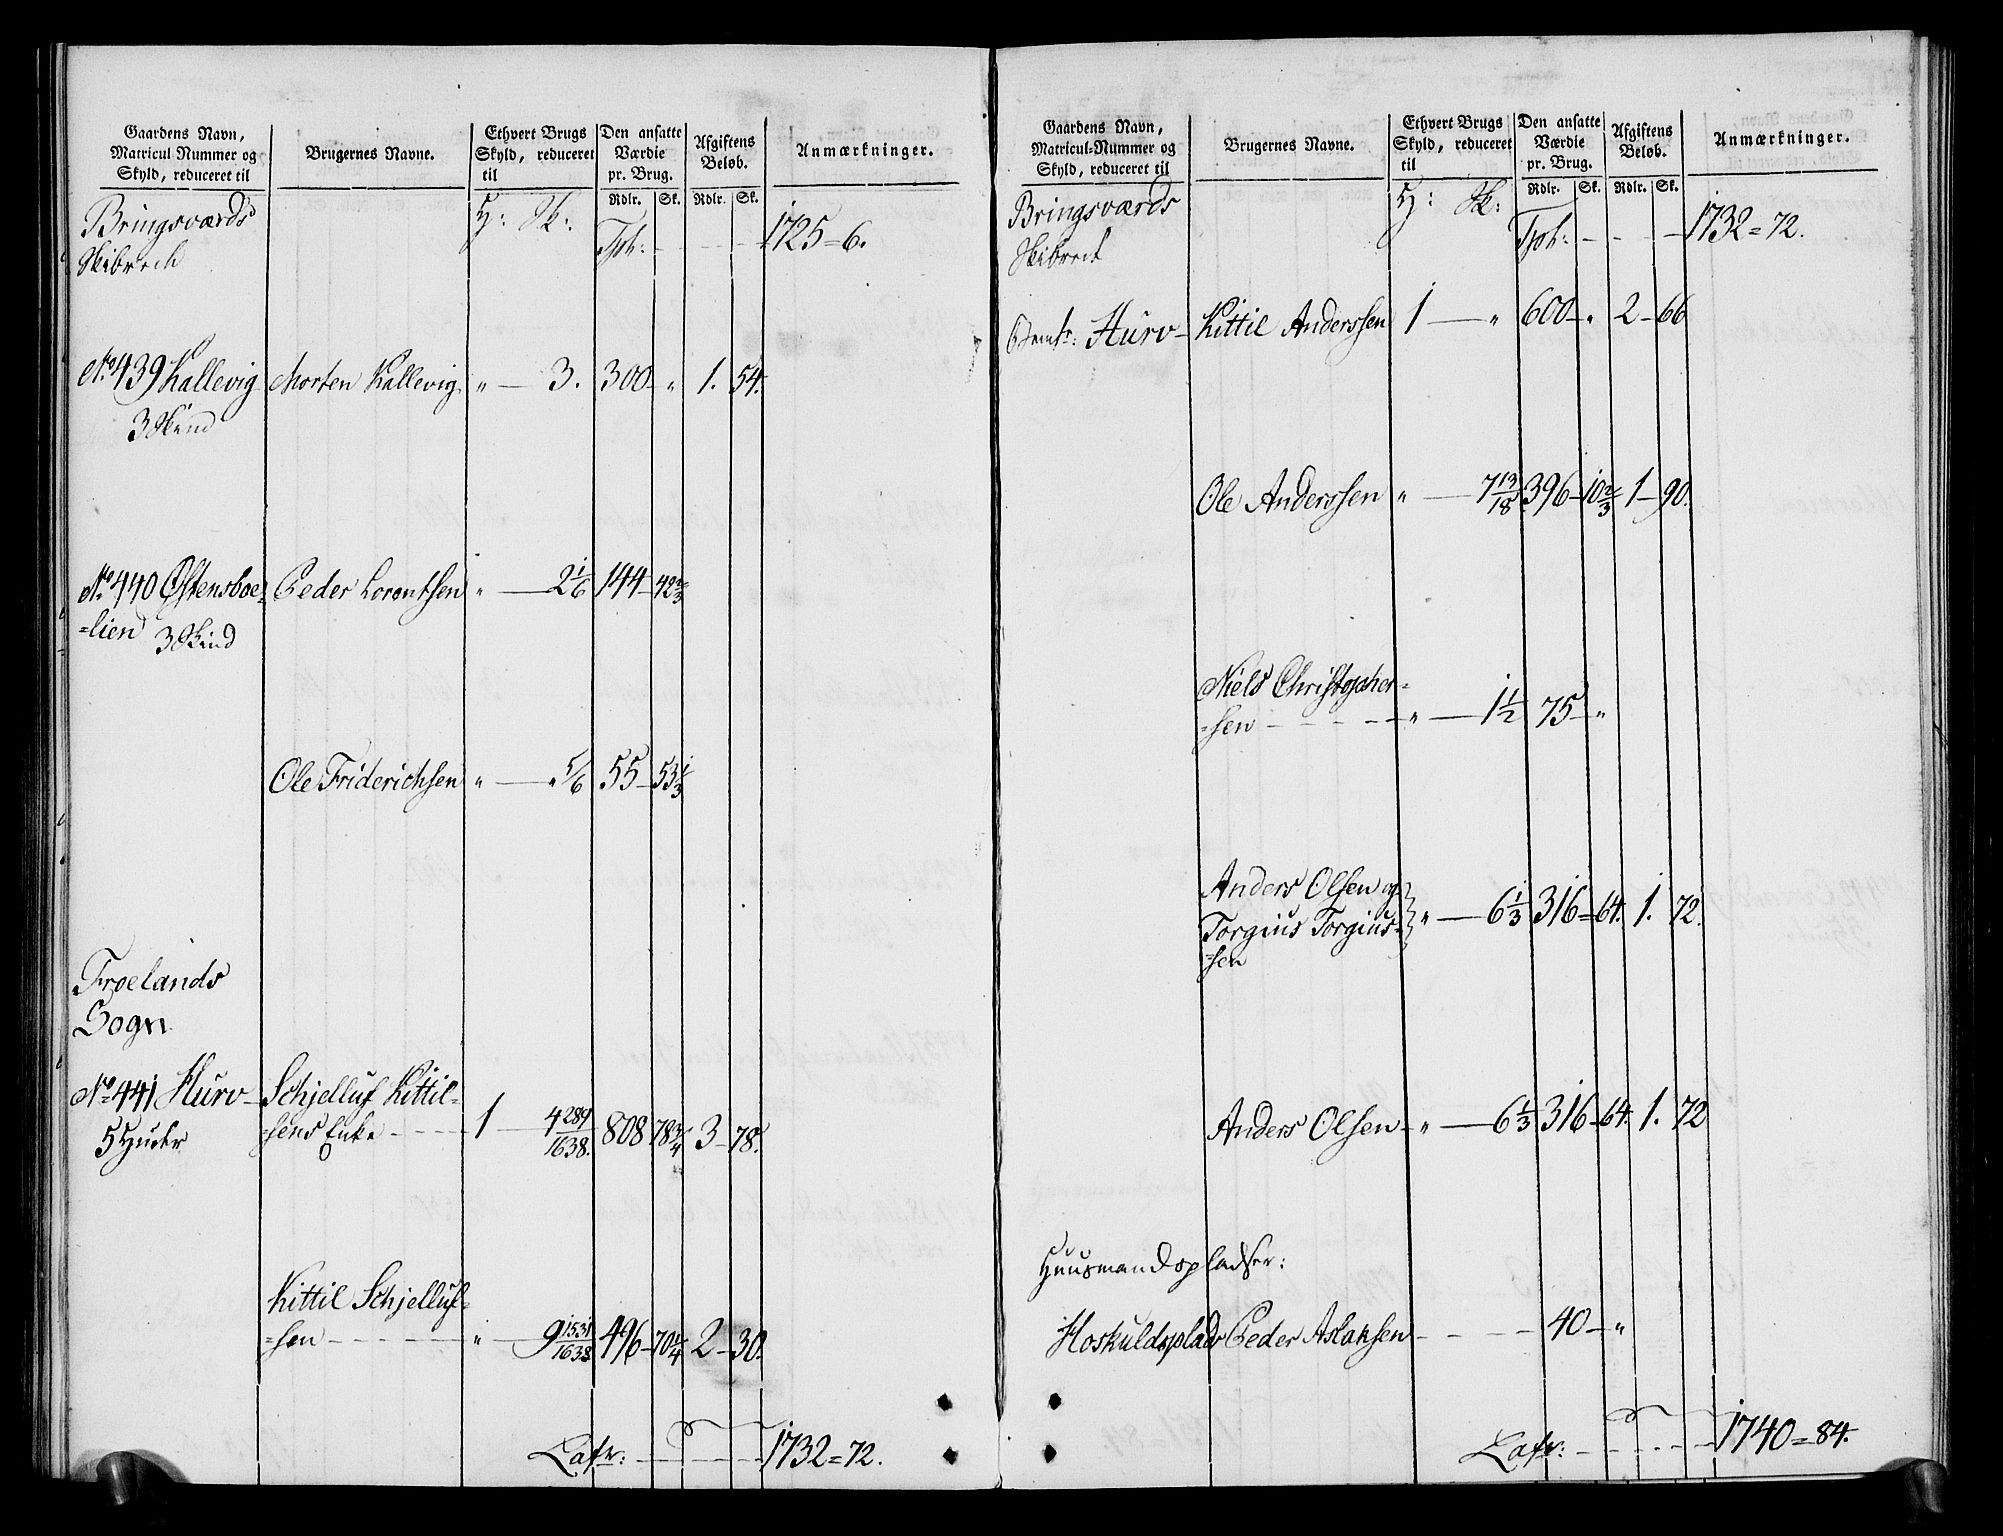 Gaardens Navn,
Matricul-Nummer og
Skyld, reduceret til
Brugernes Navne.
Ethvert Brugs
Skyld, reduceret
til
Den ansatte
Værdie
pr. Brug.
Afgiftens
Beløb.
Anmærkninger.
Rdlr. Sk. Rdlr. Sk.
Bringsværds H: Sk:
Skibrede Tph: 1725 = 6.
No 439 Kallevig Morten Kallevig " 3. 300 " 1. 54.
3 Skind
No 440 Østensboe= Peder Lorentsen " 2 1/6 144 42 2/3
=lien 3 Skind
Ole Friderichsen " " 5/6 55 53 1/3
Froelands
Sogn
No 441 Hurv Schjelluf Kittil=
5 Huder =sens Enke 1 4 289/1638. 808 78 3/4 3 78.
Kittil Schjelluf=
=sen " 9 1531/1638 496 70 1/4 2 30.
Lafr: 1732 = 72.
Gaardens Navn,
Matricul-Nummer og
Skyld, reduceret til
Brugernes Navne.
Ethvert Brugs
Skyld, reduceret
til
Den ansatte
Værdie
pr. Brug.
Afgiftens
Beløb.
Anmærkninger.
Rdlr. Sk. Rdlr. Sk.
Bringsværds H: Sk:
Skibrede Tph: 1732 = 72.
Hurv Kittil Anderssen 1 " 600 " 2 66
Ole Anderssen " 7 13/18 396 10 2/3 1 90.
Niels Christopher=
=sen " 1 1/2 75 "
Anders Olsen og
Torgius Torgius= " 6 1/3 316 64. 1. 72.
=sen
Anders Olsen " 6 1/3 316 64. 1. 72
Huusmandspladser:
Hoskuldsplads Peder Aslaksen 40 "
Lafr: 1740 = 84.